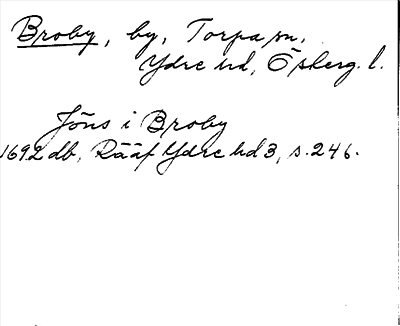 Broby, by, Torpa sn,
Ydre hd, Ösherg. l.
Jöns i Broby
1692 db, Rääf Ydre hd 3, s. 246.